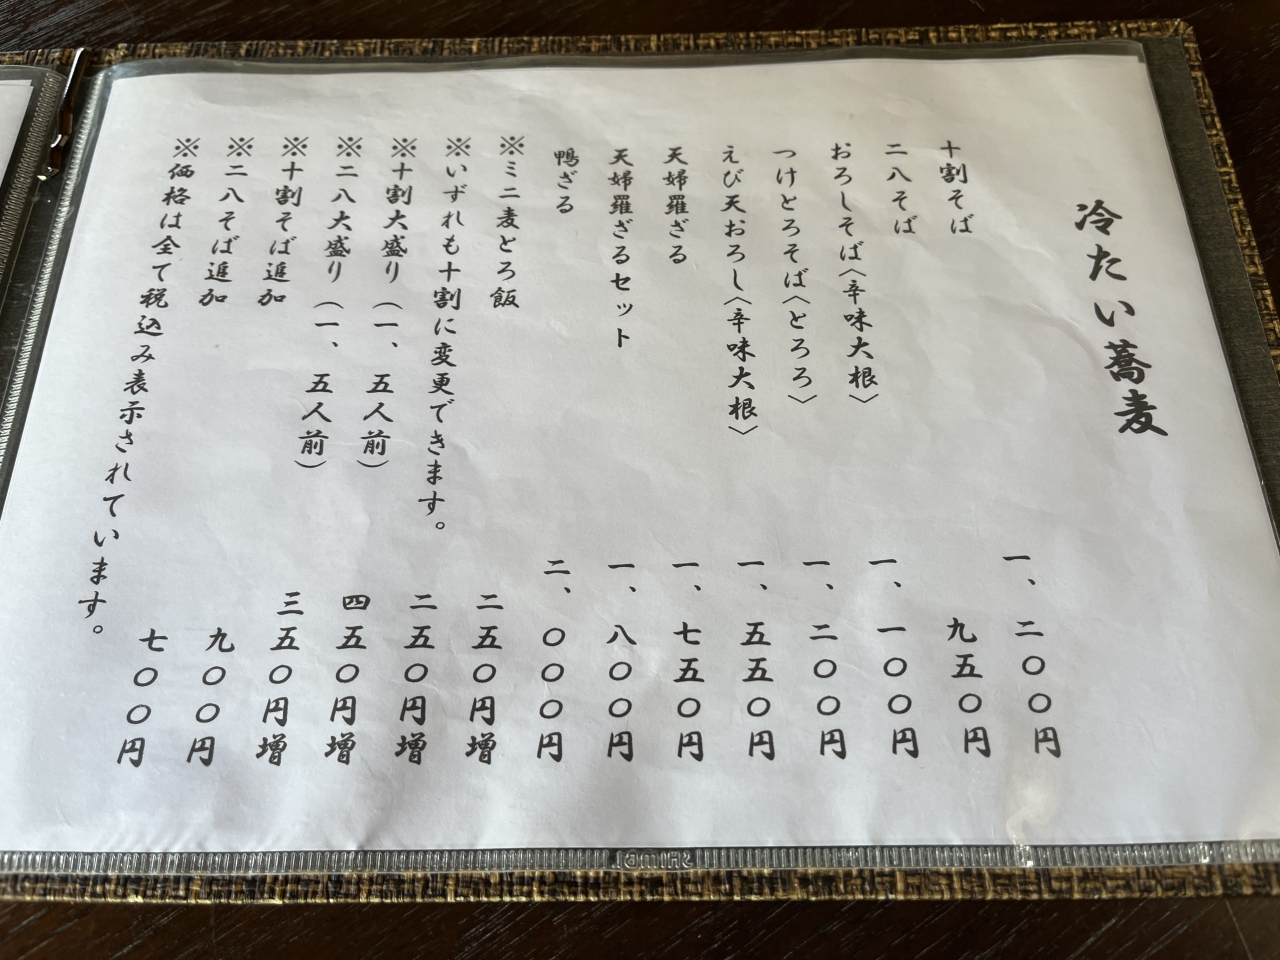 冷たい蕎麦
十割そば 一、二〇〇円
二八そば 九五〇円
おろしそば〈辛味大根〉 一、一〇〇円
つけとろそば〈とろろ〉 一、二〇〇円
えび天おろし〈辛味大根〉 一、五五〇円
天婦羅ざる 一、七五〇円
天婦羅ざるセット 一、八〇〇円
鴨ざる 二、〇〇〇円
※ミニ麦とろ飯 二五〇円増
※いずれも十割に変更できます。 二五〇円増
※十割大盛り（一、五人前） 四五〇円増
※二八大盛り（一、五人前） 三五〇円増
※十割そば追加 九〇〇円
※二八そば追加 七〇〇円
※価格は全て税込み表示されています。